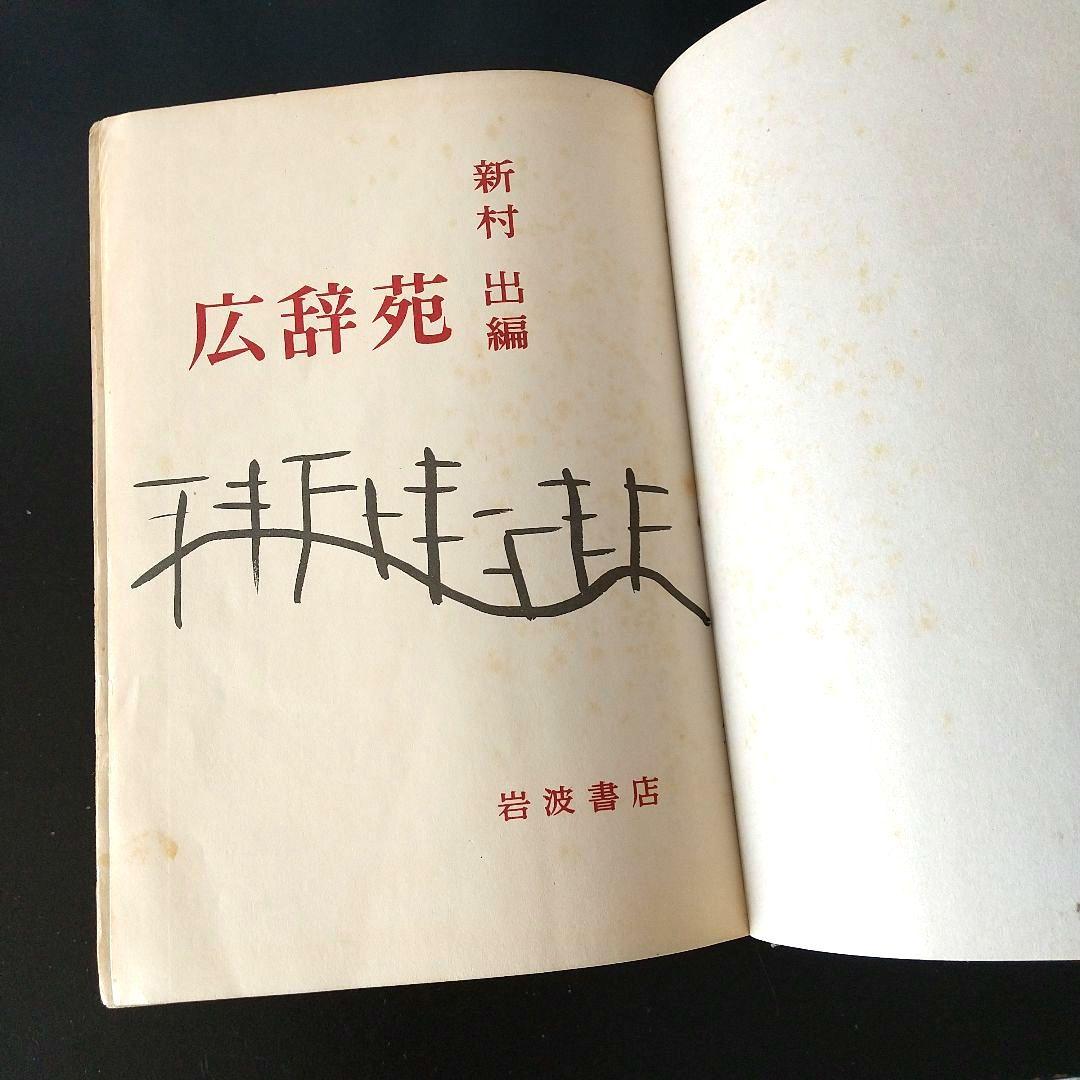 新村 出編
広辞苑
岩波書店